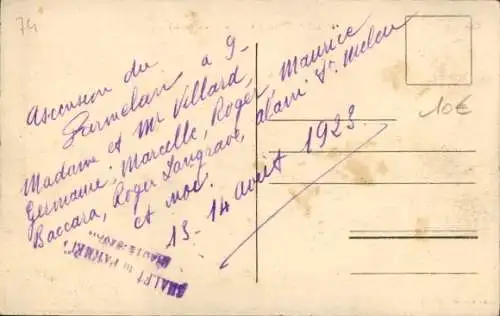 74
Ascension du
Parmelan à 9.
Madame et Mr Villard
Germaine, Marcelle, Roger, Maurice
Baccara, Roger Langrave, alain St Melou
et moi.
13-14 août 1923
CHALET du PARMEL
HAUTE-SAV
10€